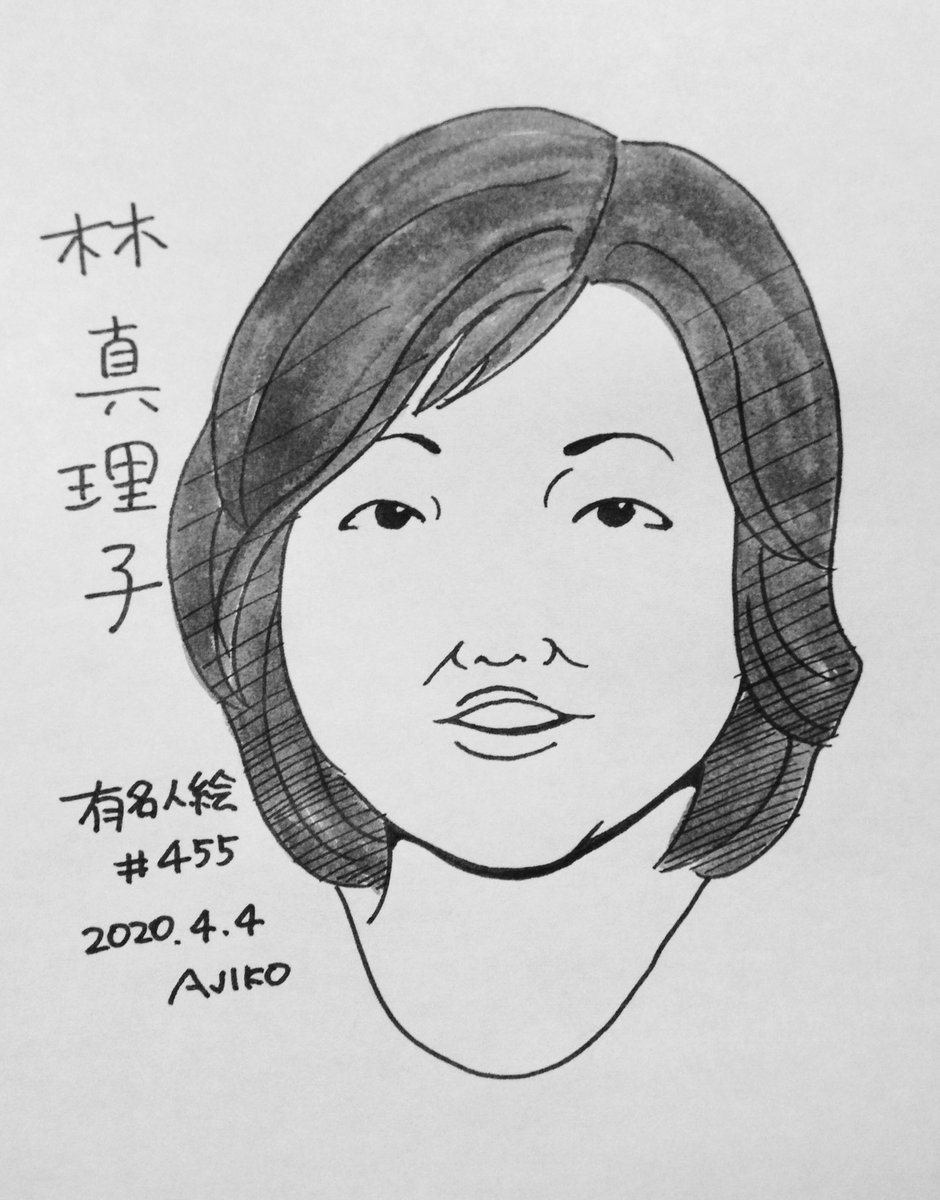 林真理子
有名人絵
#455
2020.4.4
AJIKO